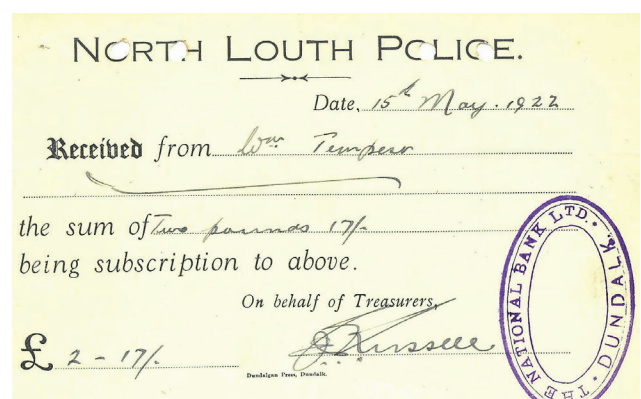 NORTH LOUTH POLICE.
Date, 15th May. 1922
Received from Wm Tempest
the sum of Two pounds 17/-
being subscription to above.
On behalf of Treasurers,
Russell
£ 2 - 17/-
Dundalgan Press, Dundalk.
THE NATIONAL BANK LTD. DUNDALK